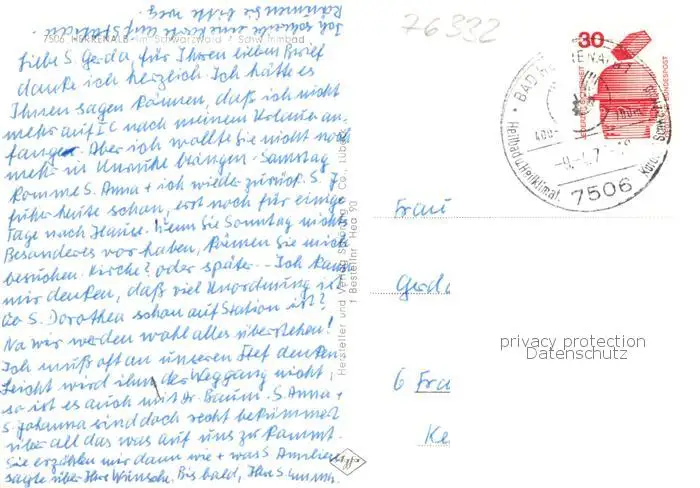 Ich schreibe eine Karte auf Station.
Räumen Sie bitte weg.
7506 HERRENALB im Schwarzwald / Schwimmbad
Liebe S. Gerda, für Ihren lieben Brief
danke ich herzlich. Ich hätte es
Ihnen sagen können, daß ich nicht
mehr auf IC nach meinem Urlaub an-
fange. Aber ich wollte Sie nicht noch
mehr in Unruhe bringen. Samstag
komme S. Anna + ich wieder zurück. S. J.
fuhr heute schon, erst noch für einige
Tage nach Hause. Wenn Sie Sonntag nichts
Besonderes vor haben, können Sie mich
besuchen. Kirche? oder später. - Ich kann
mir denken, daß viel Unordnung ist
S. Dorothea schon auf Station ist?
Na wir werden wohl alles überstehen!
Ich muß oft an unseren Chef denken
Leicht wird ihm der Weggang nicht,
so ist es auch mit Dr. Baum. S. Anna +
S. Johanna sind doch recht bekümmert
über all das was auf uns zu kommt.
Sie erzählen mir dann wie + was S. Amalie
sagte über Ihre Wünsche. Bis bald, Ihre S.
Hersteller und Verlag Co., Lübeck
1 Bestellnr. Hea 90
76332
30
DEUTSCHE BUNDESPOST
BAD HERRENALB
400 - 700 m
7506
Heilbad u. Heilklimat. Kurort Schwarzwald
Frau
Gerda
6 Fra
Ke
privacy protection
Datenschutz
Agfa